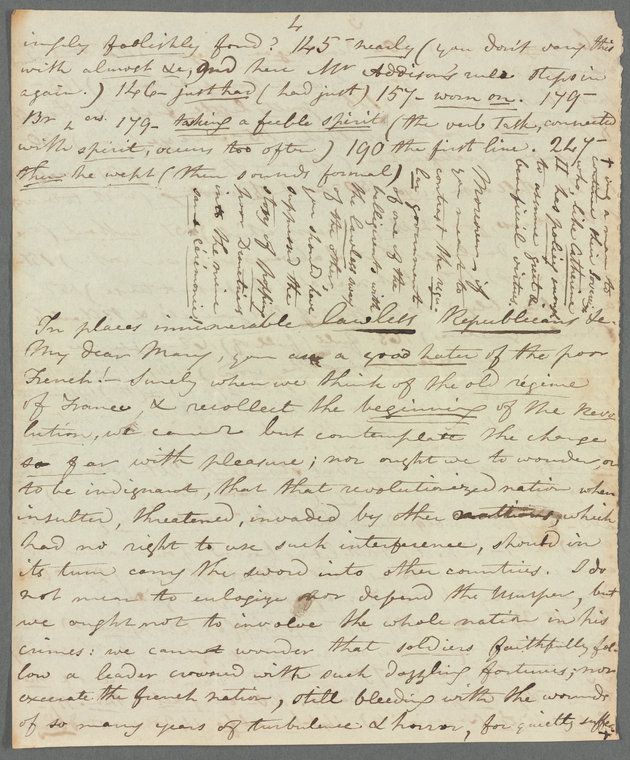 4
ingly foolishly fond? 145 - nearly (you don't vary this
with almost &c, and here Mr Addison's rule steps in
again.) 146 - just had (had just) 157 - worn on. 179 -
179 - taking a feeble spirit (the verb Task, connected
with spirit, occurs too often) 190 the first line. 247 -
then she wept (then sounds formal)
In places innumerable lawless Republicans &c.
My dear Mary, you are a good hater of the poor
French! - Surely when we think of the old régime
of France, & recollect the beginning of the revo
lution, we cannot but contemplate the change
so far with pleasure; nor ought we to wonder, or
to be indignant, that that revolutionized nation when
insulted, threatened, invaded by other nations, which
had no right to use such interference, should in
its turn carry the sword into other countries. I do
not mean to eulogize nor defend the usurper, but
we ought not to involve the whole nation in his
crimes: we cannot wonder that soldiers faithfully fol
low a leader crowned with such dazzling fortunes; nor
execrate the French nation, still bleeding with the wounds
of so many years of turbulence & horror, for quietly suffer
+ only a man to
continue their Sovereign
who, like Catherine
II has policy enough
to assume great &
beneficial virtues.
Moreover if
you meant to
contrast the regu
lar government
of one of the
belligerents with
the lawless sway
of the other,
you should have
supposed the
story of popping
poor Dentatus
into the mine
sans cérémonies